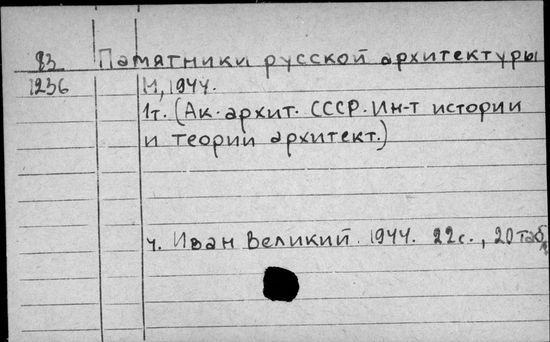 83 Памятники русской архитектуры
1236 М, 1944.
1т. (Ак. архит. СССР. Ин-т истории
и теории архитект.)
ч. Иван Великий. 1944. 22с., 20 таб.